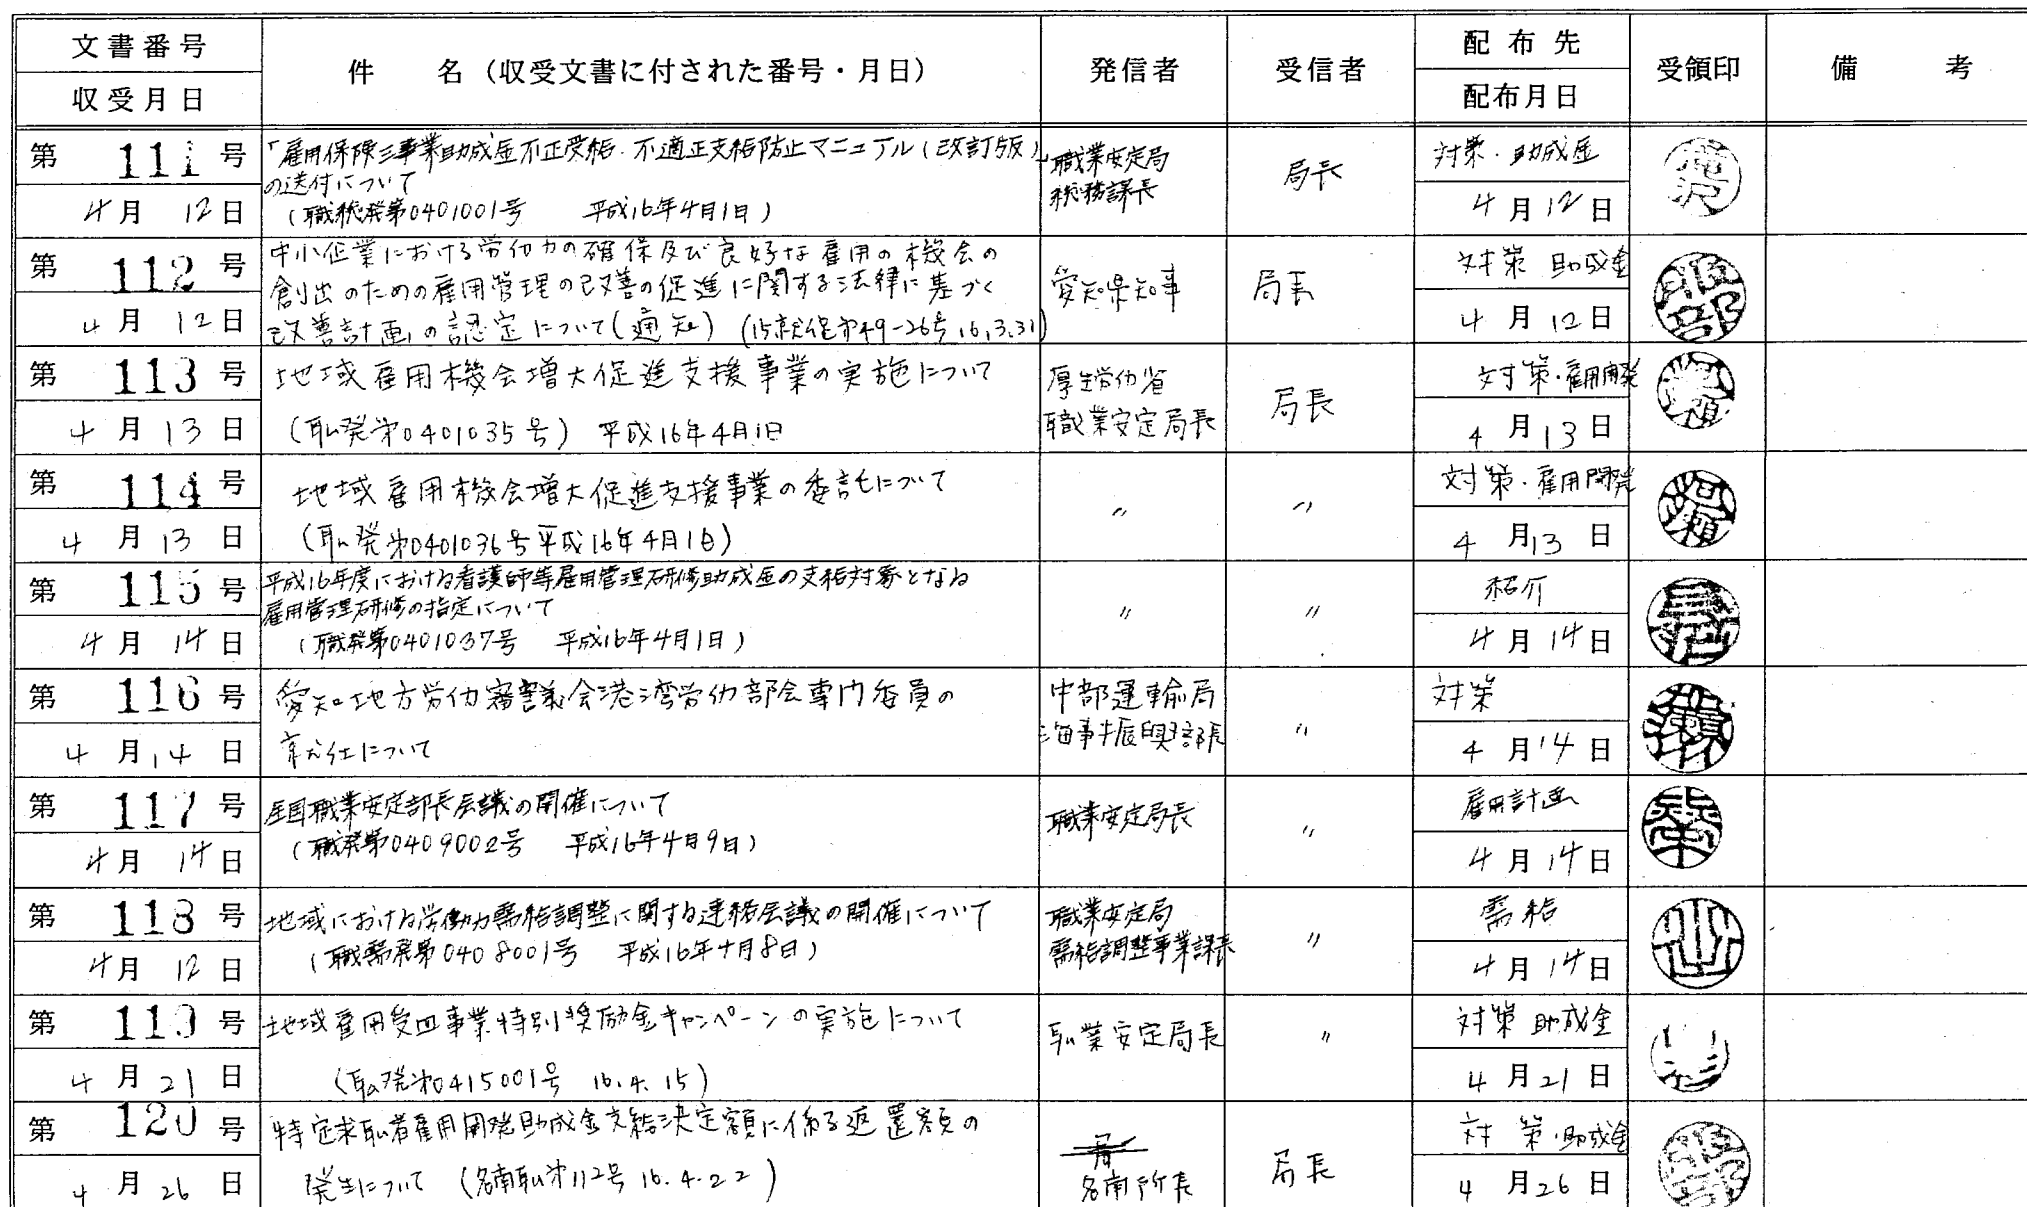 文書番号
収受月日
件 名（収受文書に付された番号・月日）
発信者
受信者
配布先
配布月日
受領印
備考
第 111 号
4月 12日
「雇用保険三事業助成金不正受給・不適正支給防止マニュアル（改訂版）」
の送付について
（職総発第0401001号 平成16年4月1日）
職業安定局
総務課長
局長
対策・助成金
4月12日
第 112 号
4月 12日
中小企業における労働力の確保及び良好な雇用の機会の
創出のための雇用管理の改善の促進に関する法律に基づく
改善計画の認定について（通知）（15就促第49-26号 16.3.31）
愛知県知事
局長
対策 助成金
4月12日
服部
第 113 号
4月13日
地域雇用機会増大促進支援事業の実施について
（職発第0401035号） 平成16年4月1日
厚生労働省
職業安定局長
局長
対策・雇用開発
4月13日
第 114 号
4月13日
地域雇用機会増大促進支援事業の委託について
（職発第0401036号平成16年4月1日）
〃
〃
対策・雇用開発
4月13日
第 115 号
4月 14日
平成16年度における看護師等雇用管理研修助成金の支給対象となる
雇用管理研修の指定について
（職発第0401037号 平成16年4月1日）
〃
〃
紹介
4月14日
第 116 号
4月14日
愛知地方労働審議会港湾労働部会専門委員の
就任について
中部運輸局
海事振興部長
〃
対策
4月14日
第 117 号
4月 14日
全国職業安定部長会議の開催について
（職発第0409002号 平成16年4月9日）
職業安定局長
〃
雇用計画
4月14日
第 118 号
4月 12日
地域における労働力需給調整に関する連絡会議の開催について
（職需発第0408001号 平成16年4月8日）
職業安定局
需給調整事業課長
〃
需給
4月14日
第 119 号
4月21日
地域雇用受皿事業特別奨励金キャンペーンの実施について
（職発第0415001号 16.4.15）
職業安定局長
〃
対策 助成金
4月21日
第 120 号
4月26日
特定求職者雇用開発助成金支給決定額に係る返還額の
発生について （名南職第112号 16.4.22）
名南所長
局長
対策・助成金
4月26日